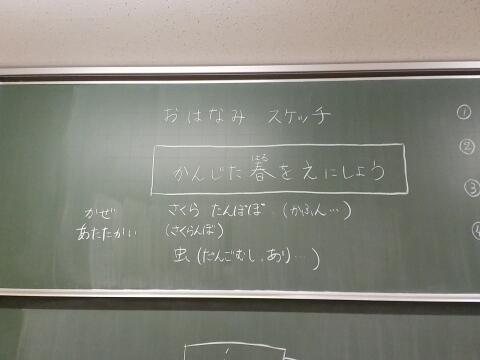 おはなみ スケッチ
かんじた春をえにしよう
はる
さくら たんぽぽ (かふん…)
(さくらんぼ)
虫(だんごむし、あり…)
かぜ
あたたかい
①
②
③
④